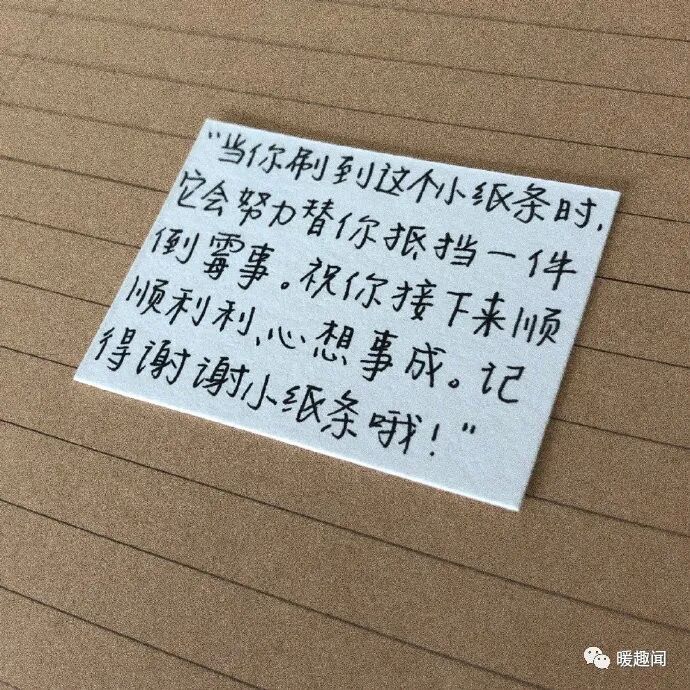 “当你刷到这个小纸条时,
它会努力替你抵挡一件
倒霉事。祝你接下来顺
顺利利、心想事成。记
得谢谢小纸条哦！”
暖趣闻